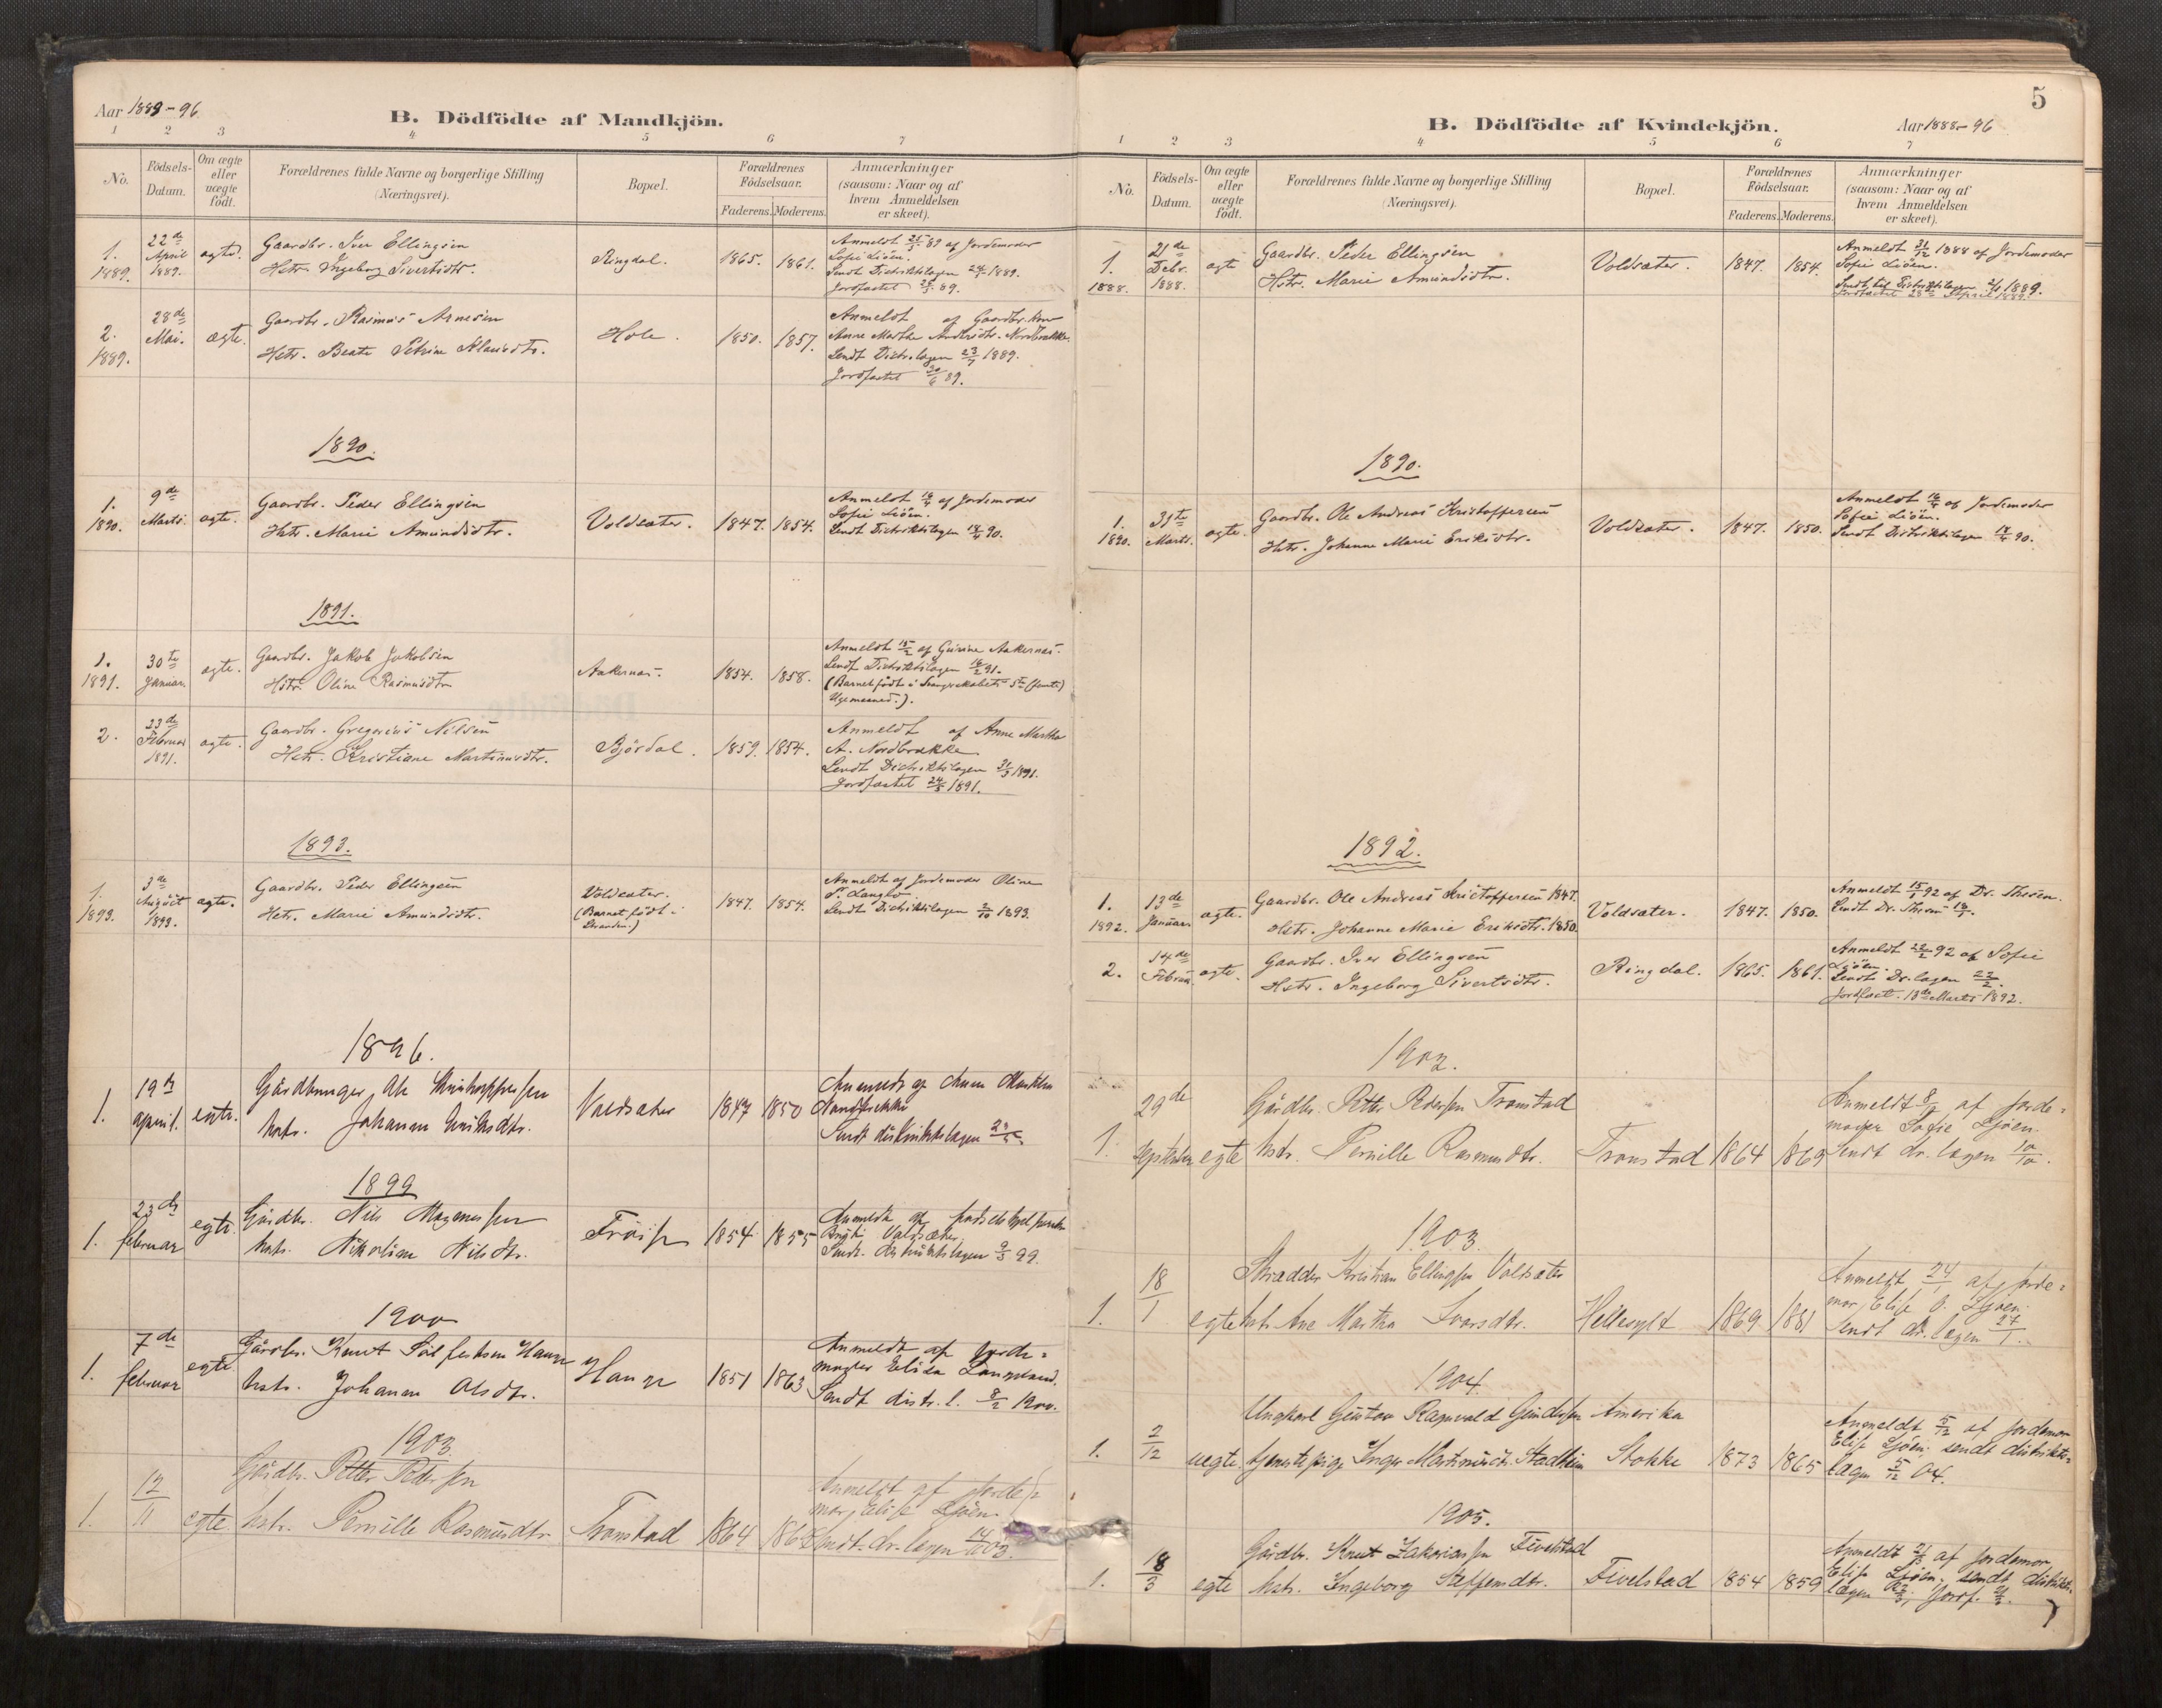 Aar 1889-96
B. Dödfödte af Mandkjön.
1 2 3 4 5 6 7
No.
Födsels-
Datum.
Om ægte
eller
uægte
födt.
Forældrenes fulde Navne og borgerlige Stilling
(Næringsvei).
Bopæl.
Forældrenes
Födselsaar.
Faderens. Moderens.
Anmærkninger
(saasom: Naar og af
hvem Anmeldelsen
er skeet).
1.
1889.
22de
April
1889.
ægte.
Gaardbr. Iver Ellingsen
Hstr. Ingeborg Sivertsdtr.
Ringdal.
1865.
1861.
Anmeldt 89 af Jordemoder
Sofie Liöen.
Sendt Distriktslægen 1889.
Jordfæstet 89.
2.
1889.
28de
Mai.
ægte.
Gaardbr. Rasmus Arnesen
Hstr. Beate Petrine
Hole.
1850.
1857.
Anmeldt af Gaardbr.kone
Anne Marthe Nordbrække.
Sendt Distr.lægen 23/7 1889.
Jordfæstet 30/6 89.
1890.
1.
1890.
9de
Marts.
ægte.
Gaardbr. Peder Ellingsen
Hstr. Marie Amundsdtr.
Voldsæter.
1847.
1854.
Anmeldt af Jordemoder
Sofie Liöen.
Sendt Distriktslægen 90.
1891.
1.
1891.
30te
Januar.
ægte.
Gaardbr. Jakob Jakobsen
Hstr. Oline Rasmusdtr.
Aakernæs.
1854.
1858.
Anmeldt af Gurine Aakernæs.
Sendt Distriktslægen 91.
(Barnet födt i Svangerskabets 5te (femte)
Ugemaaned.).
2.
23de
Februar
1891.
ægte.
Gaardbr. Gregorius Nilsen
Hstr. Kristiane Martinusdtr.
Björdal.
1859.
1854.
Anmeldt af Anne Martha
A. Nordbrække
Sendt Distriktslægen 31/3 1891.
Jordfæstet 24/3 1891.
1893.
1.
1893.
3de
August
1893.
ægte.
Gaardbr. Peder Ellingsen
Hstr. Marie Amundsdtr.
Voldsæter.
(Barnet födt i
Stranden.)
1847.
1854.
Anmeldt af Jordemoder Oline
P. Langlo
Sendt Distriktslægen 1893.
1896.
1.
19de
april.
egte.
Gårdbruger Ole Kristoffersen
hstr. Johanne Eriksdtr.
Voldsæter
1847
1850
Anmeldt af Anne Martha
Nordbrekke
Sendt distriktslægen
1899
1.
23de
februar
egte.
Gårdbr. Nils Magnussen
hstr. Nikoline Nilsdtr.
1854
1855
Anmeldt af fødselshjelpersken
Valdsæter.
Sendt distriktslægen 9/3 99.
1900
1.
7de
februar
egte
Gårdbr. Knut Hauge
hstr. Johanne Olsdtr.
Hauge
1851
1863
Anmeldt af jorde-
moder Elisa Langeland.
Sendt distr. l. 8/2 1900.
1903
1.
12/11
egte
Gårdbr. Petter Pedersen
hstr. Pernille Rasmusdtr.
Tronstad
1864
Anmeldt af jorde-
mor, Elise Ljöen.
Sendt dr. lægen 03.
5
B. Dödfödte af Kvindekjön.
Aar 1888-96
1 2 3 4 5 6 7
No.
Födsels-
Datum.
Om ægte
eller
uægte
födt.
Forældrenes fulde Navne og borgerlige Stilling
(Næringsvei).
Bopæl.
Forældrenes
Födselsaar.
Faderens. Moderens.
Anmærkninger
(saasom: Naar og af
hvem Anmeldelsen
er skeet).
1.
1888.
21de
Debr.
1888.
ægte
Gaardbr. Peder Ellingsen
Hstr. Marie Amundsdtr.
Voldsæter.
1847.
1854.
Anmeldt 31/12 1888 af Jordemoder
Sofie Liöen.
Sendt til Distriktslægen 1889.
Jordfæstet 28de April 1889.
1890.
1.
1890.
31te
Marts.
ægte.
Gaardbr. Ole Andreas Kristoffersen
Hstr. Johanne Marie Eriksdtr.
Voldsæter.
1847.
1850.
Anmeldt af Jordemoder
Sofie Liöen.
Sendt Distriktslægen 90.
1892.
1.
1892.
13de
Januar.
ægte.
Gaardbr. Ole Andreas Kristoffersen 1847.
Hstr. Johanne Marie Eriksdtr. 1850.
Voldsæter.
1847.
1850.
Anmeldt 92 af Dr. Thesen.
Sendt Dr. Thesen
2.
14de
Februar
ægte.
Gaardbr. Iver Ellingsen
Hstr. Ingeborg Sivertsdtr.
Ringdal.
1865.
1861.
Anmeldt 92 af Sofie
Ljöen.
Sendt Dr. lægen 22/2.
Jordfæst. 13de Marts 1892.
1902.
1.
29de
September
egte
Gårdbr. Petter Pedersen Tronstad
hstr. Pernille Rasmusdtr.
Tronstad
1864
1869
Anmeldt af jorde-
moder Sofie Ljöen.
Sendt dr. lægen 10/10.
1903.
1.
18/1
egte
Skrædder Kristian Ellingsen Voldsæter
hstr. Ane Martha Ivarsdtr.
Hellesylt
1869
1881
Anmeldt 24/1 af jorde-
mor, Elise O. Ljöen.
Sendt dr. lægen 27/1.
1904.
1.
2/12
uegte.
Ungkarl Gustav Ragnvald Gundersen Amerika
tjenestepige Inger Martinusdtr. Stadheim
Stokke
1873
1865
Anmeldt 5/12 af jordemor
Elise Ljöen. sendt distrikts-
lægen 5/12 04.
1905.
1.
18/3
egte
Gårdbr. Knut Zakariassen Fivelstad
hstr. Ingeborg Steffensdtr.
Fivelstad
1854
1859
Anmeldt 21/3 af jordemor
Elise Ljöen. sendt distrikts-
lægen Jordf.